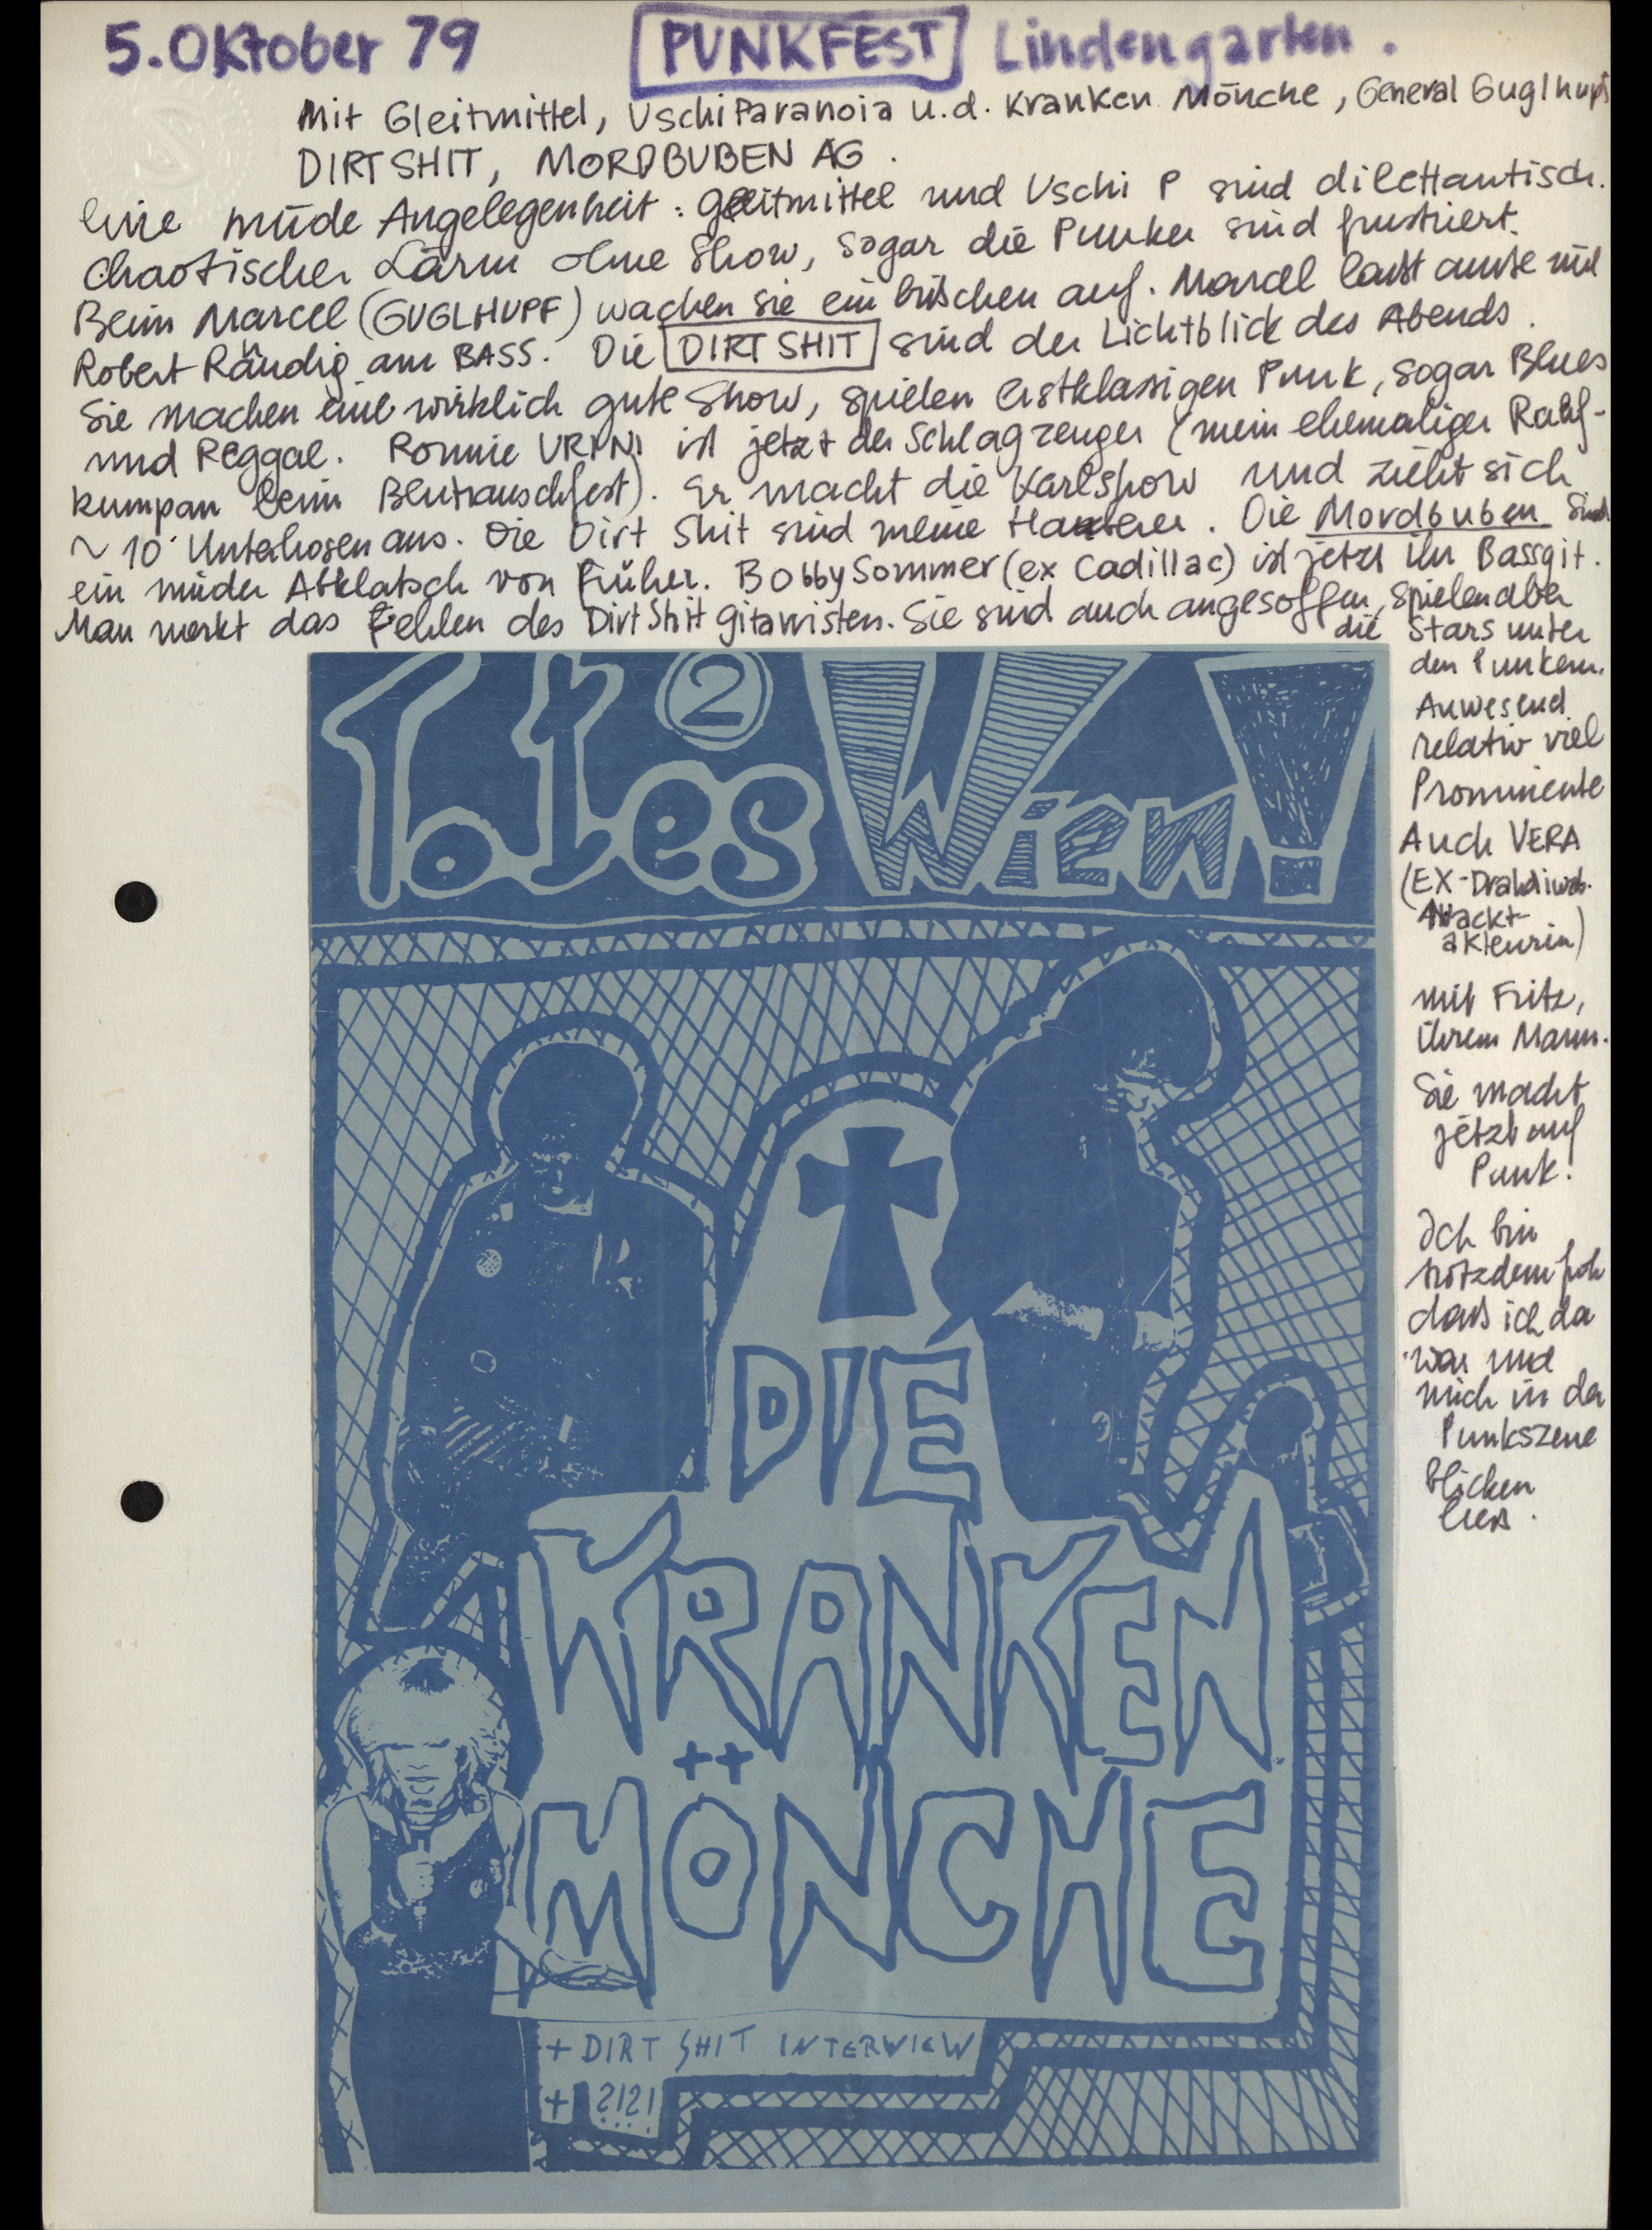 5. Oktober 79 PUNKFEST Lindengarten.
Mit Gleitmittel, Uschi Paranoia u.d. Kranken Mönche, General Guglhupf
DIRT SHIT, MORDBUBEN AG.
Eine müde Angelegenheit: Gleitmittel und Uschi P sind dilettantisch.
Chaotischer Lärm ohne Show, sogar die Punker sind frustriert.
Beim Marcel (GUGLHUPF) wachen sie ein bischen auf. Marcel
Robert Räudig am BASS. Die DIRT SHIT sind der Lichtblick des Abends.
Sie machen eine wirklich gute Show, spielen erstklassigen Punk, sogar Blues
und Reggae. Ronnie URINI ist jetzt der Schlagzeuger (mein ehemaliger Rauf-
kumpan beim Blutrauschfest). Er macht die Karlshow und zieht sich
~ 10 Unterhosen aus. Die Dirt Shit sind meine Haberer. Die Mordbuben sind
ein müder Abklatsch von Früher. Bobby Sommer (ex Cadillac) ist jetzt ihr Bassgit.
Man merkt das Fehlen des Dirt Shit gitarristen. Sie sind auch angesoffen, spielen aber
die Stars unter
den Punkern.
Anwesend
relativ viel
Prominente
Auch VERA
(EX-Drahdiwab.
Nackt-
akteurin)
mit Fritz,
ihrem Mann.
Sie macht
jetzt auf
Punk!
Ich bin
trotzdem froh
dass ich da
war und
mich in der
Punkszene
blicken
liess.
2
Totes Wien!
DIE
KRANKEN
MÖNCHE
+ DIRT SHIT INTERWIEW
+ 2121
....